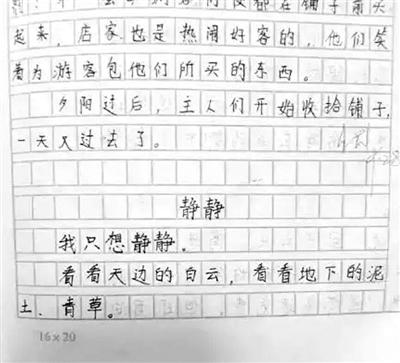 都在铺子前关
起来，店家也是热闹好客的，他们笑
着为游客包他们所买的东西。
夕阳过后，主人们开始收拾铺子，
一天又过去了。
静静
我只想静静。
看看天边的白云，看看地下的泥
土、青草。
16×20